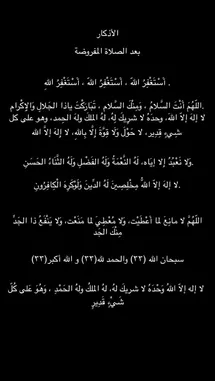 الأذكار
بعد الصلاة المفروضة
أَسْتَغْفِرُ اللهَ ، أَسْتَغْفِرُ اللهَ ، أَسْتَغْفِرُ اللهِ .
.اللّهُمَّ أَنْتَ السَّلامُ ، وَمِنْكَ السَّلام ، تَبارَكْتَ ياذا الجَلالِ والإِكْرامِ
لا إلهَ إلاّ اللهُ، وحدَهُ لا شريكَ لهُ، لهُ الملكُ ولهُ الحمد، وهو على كل
شيءٍ قدِير، لا حَوْلَ وَلَا قوَّةَ إِلَّا بِاللهِ، لا إلهَ إلاّ الله
.وَلا نَعْبُدُ إلا إيّاه، لهُ النِّعْمَةُ وَلَهُ الفَضْلُ وَلَهُ الثَّناءُ الحَسَنُ
.لا إلهَ إلاّ اللهُ مُخْلِصِينَ لَهُ الدِّينَ وَلَوْكَرِهَ الكَافِرُونَ
اللّهُمَّ لا مانِعَ لما أعْطَيْت، وَلا مُعْطِيَ لما مَنَعْت، وَلا يَنْفَعُ ذا الجَدِّ
مِنْكَ الجَد
سبحان الله (٣٣) والحمد لله(٣٣) و الله أكبر(٣٣)
لا إله إلاّ اللهُ وَحْدَهُ لا شريكَ لهُ، لهُ الملكُ ولهُ الحَمْدِ ، وَهُوَ عَلى كُلِّ
شَيْءٍ قَدِير